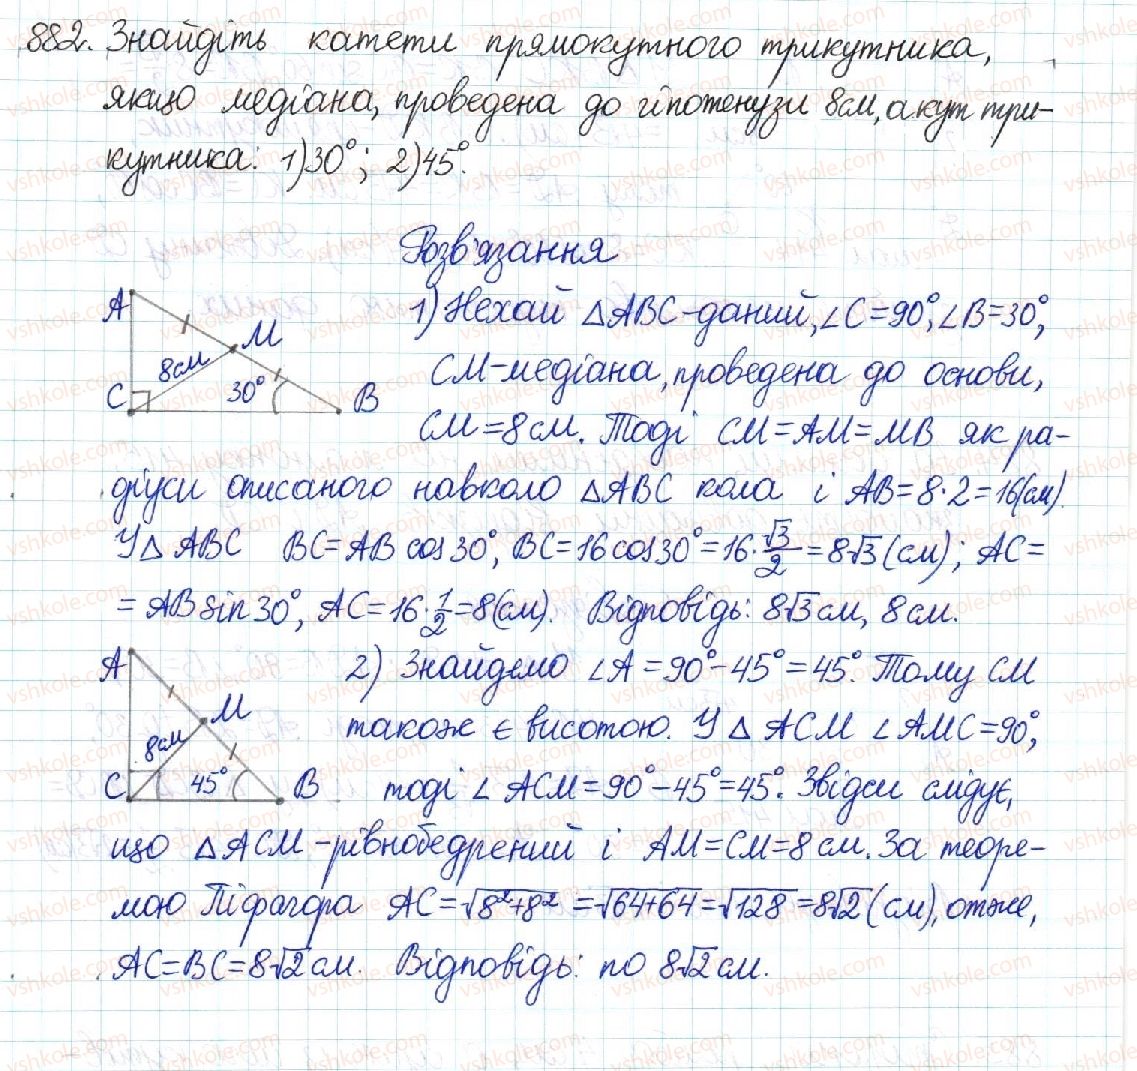 882. Знайдіть катети прямокутного трикутника,
якщо медіана, проведена до гіпотенузи 8см, а кут три-
кутника: 1)30°; 2)45°.
Розв'язання
1) Нехай △ABC-даний, ∠C=90°, ∠B=30°,
CM-медіана, проведена до основи,
CM=8см. Тоді CM=AM=MB як ра-
діуси описаного навколо △ABC кола і AB=8·2=16(см).
У △ABC BC=AB cos30°, BC=16cos30°=16·√3/2=8√3(см); AC=
=AB sin30°, AC=16·1/2=8(см). Відповідь: 8√3см, 8см.
A
M
8см
30°
C
B
2) Знайдемо ∠A=90°-45°=45°. Тому CM
також є висотою. У △ACM ∠AMC=90°,
тоді ∠ACM=90°-45°=45°. Звідси слідує,
що △ACM-рівнобедрений і AM=CM=8см. За теоре-
мою Піфагора AC=√8²+8²=√64+64=√128=8√2(см), отже,
AC=BC=8√2см. Відповідь: по 8√2см.
A
M
8см
45°
C
B
vshkole.com